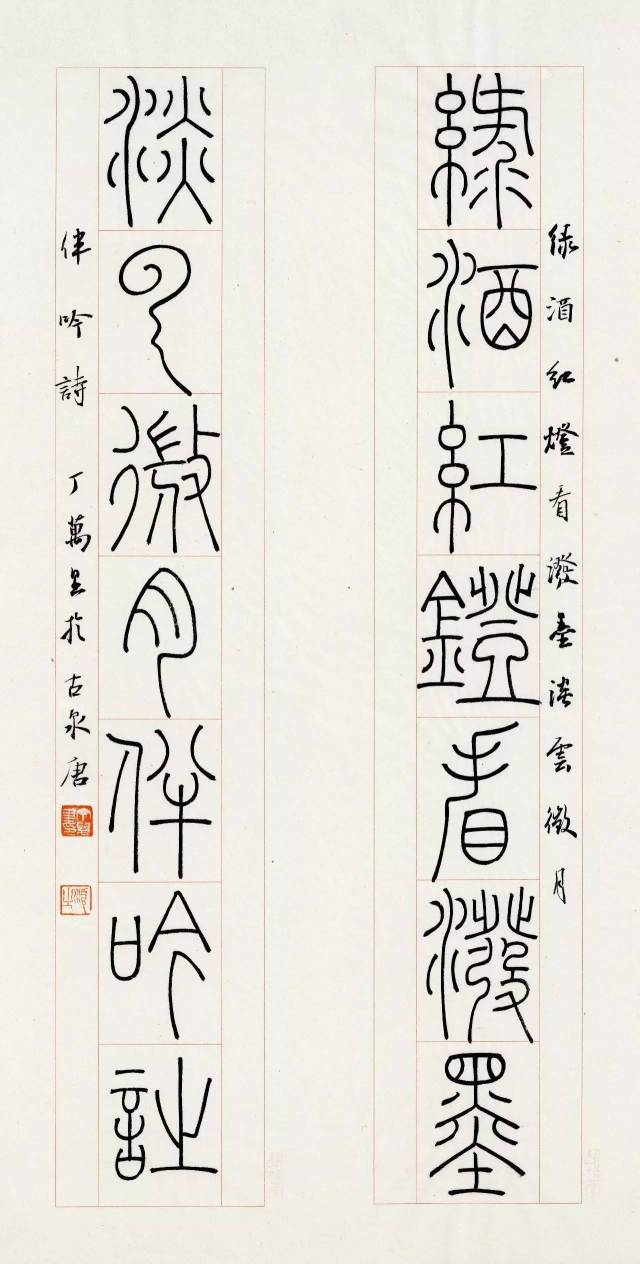 綠酒紅燈看潑墨淡雲微月
綠酒紅鐙看潑墨
淡云微月伴吟詩
伴吟詩 丁萬里於古泉唐